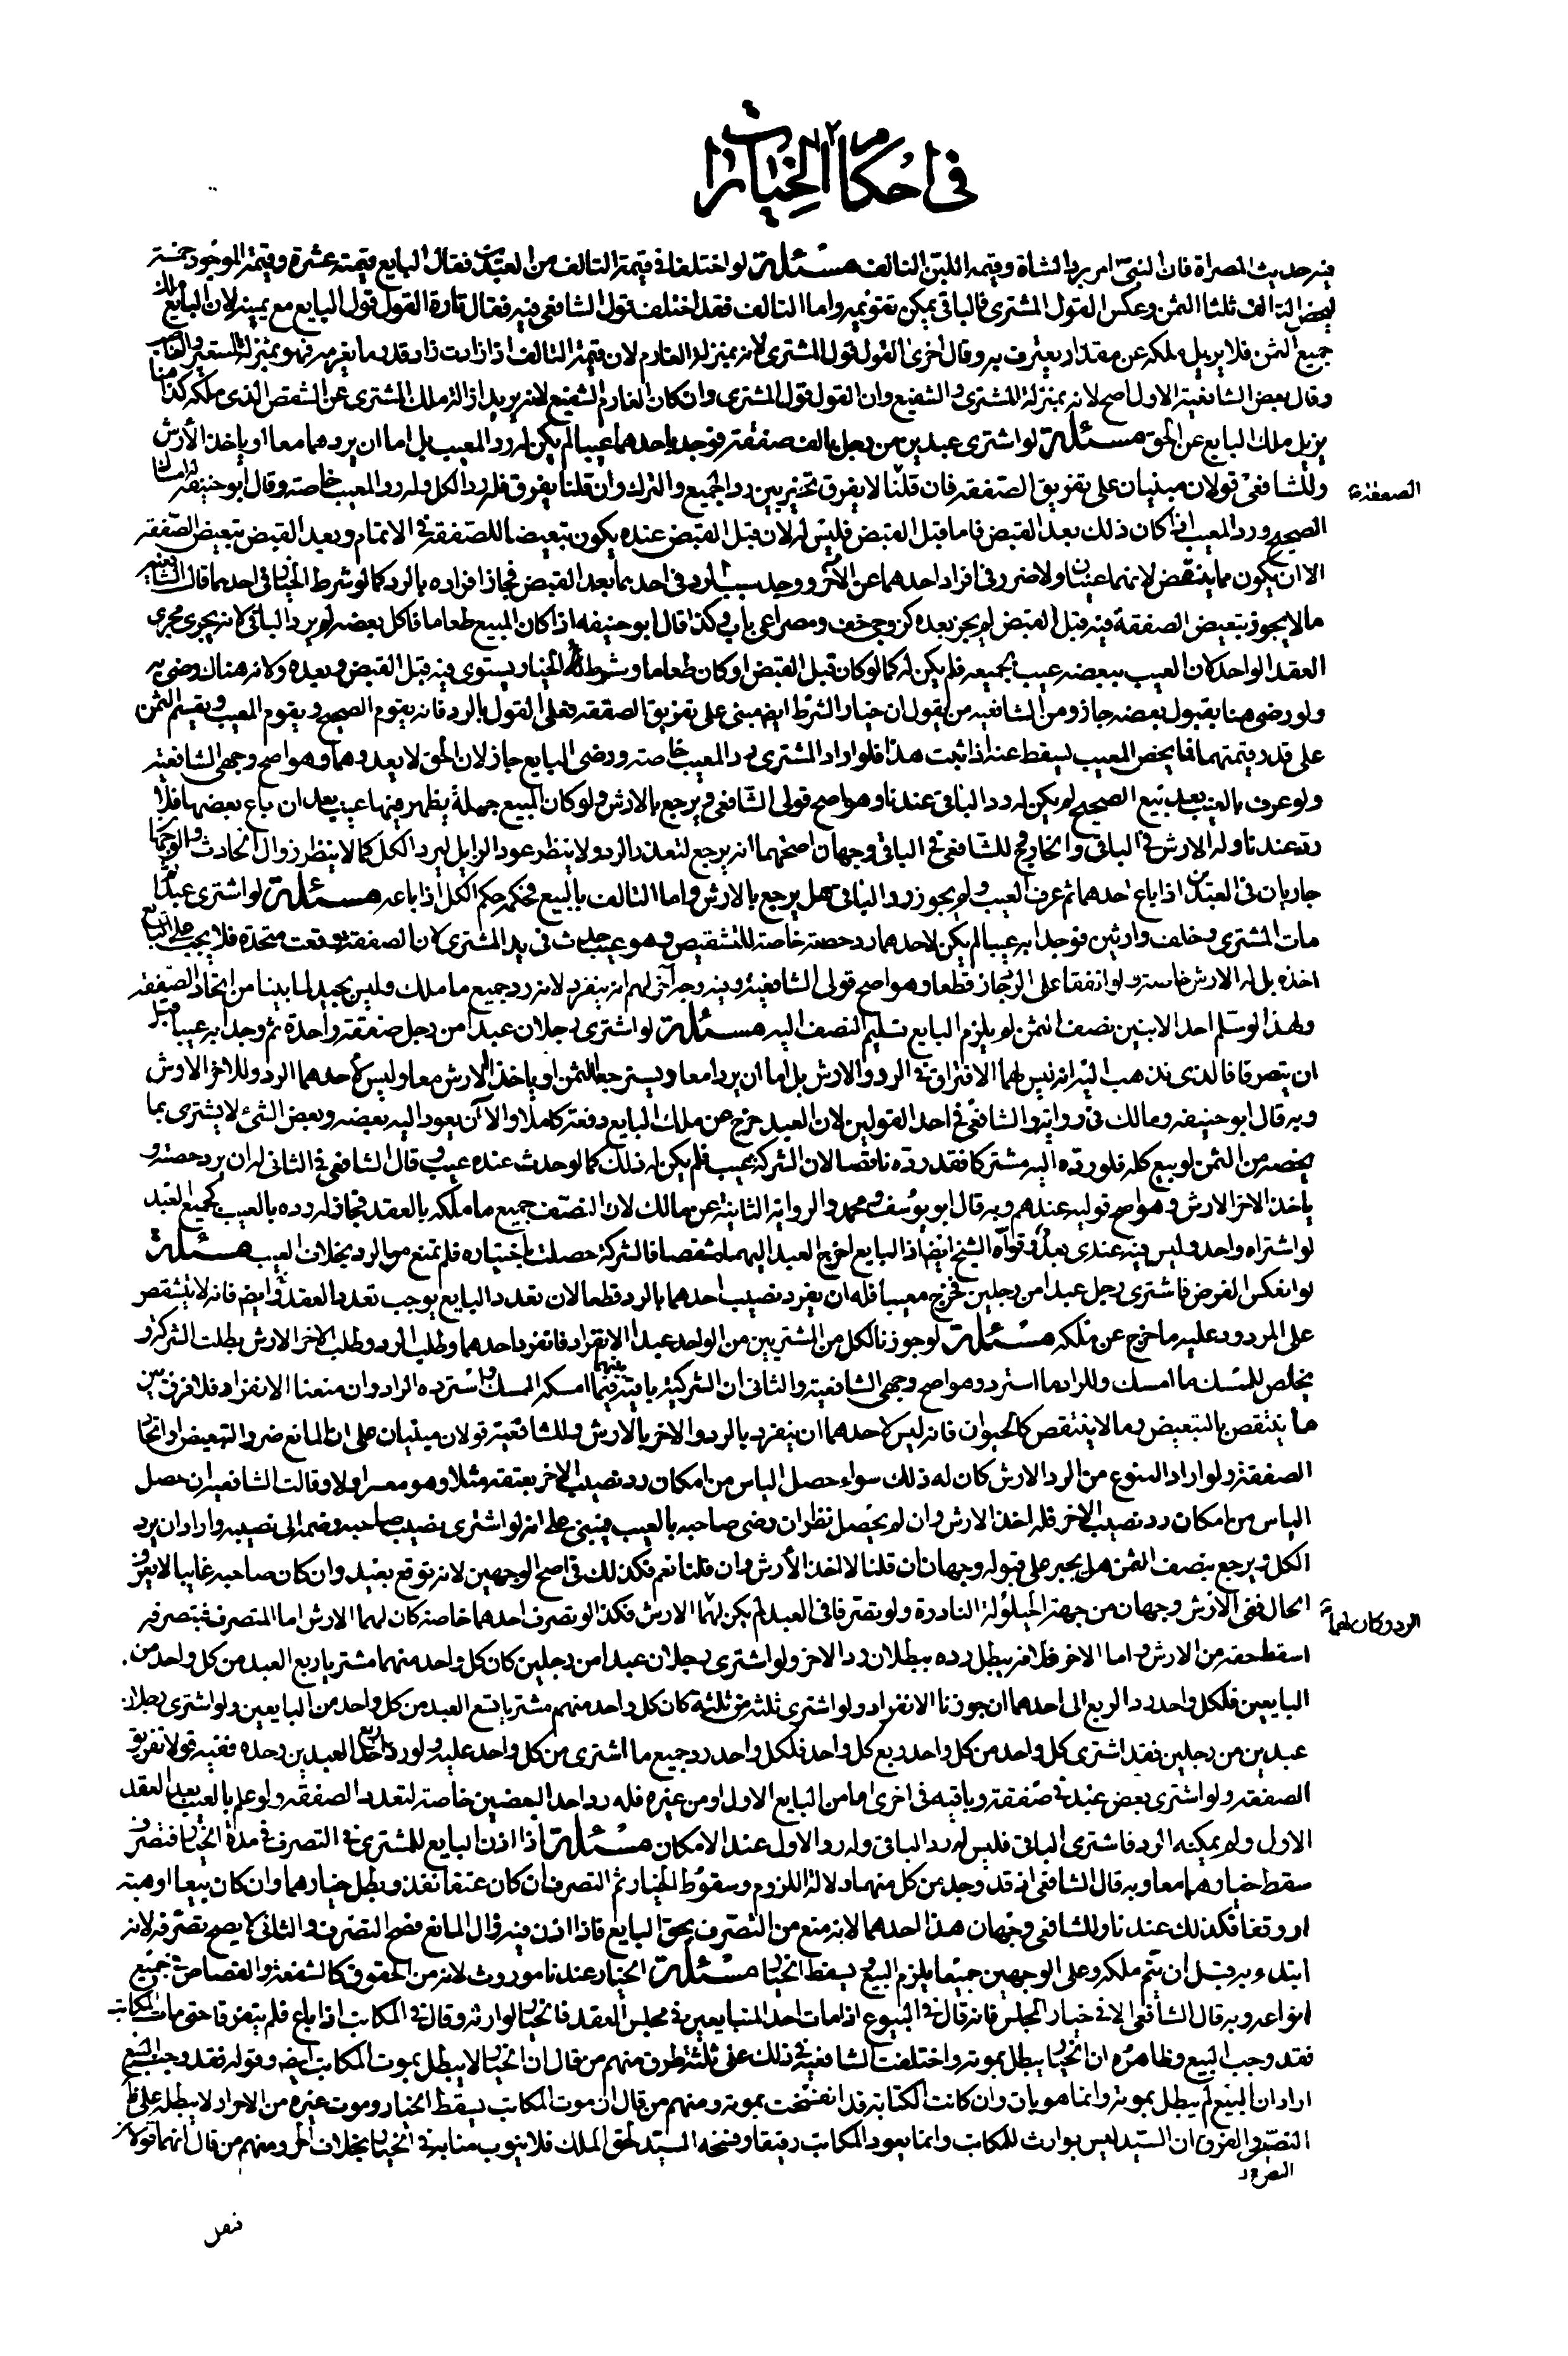 في احكام الخيارات
فيه حديث المصراة فان النبيّ امر برد الشاة وقيمه اللبن التالف مسئلة لو اختلفا في قيمة التالف من العبدين فقال البايع قيمته عشرة وقيمة الموجود خمسة
ليخص التالف ثلثا الثمن وعكس القول المشترى فالباقي يمكن تقويمه واما التالف فقد اختلف قول الشافعي فيه فقال تارة القول قول البايع مع يمينه لان البايع ملك
جميع الثمن فلا يزيل ملكه عن مقدار يعترف به وقال اخرى القول قول المشترى لانه بمنزلة الغارم لان قيمة التالف اذا زادت زاد قدر ما يغرمه فهو بمنزلة المستعير والغاصب
وقال بعض الشافعية الاول اصح لانه بمنزلة المشترى والشفيع وان القول قول المشترى وان كان الغارم الشفيع لانه يريد ازالة ملك المشترى عن الشقص الذى ملكه كذا هنا
يزيل ملك البايع عن الحق مسئلة لو اشترى عبدين من رجل بالف صفقة فوجد باحدهما عيبا لم يكن له رد المعيب بل اما ان يردهما معا او ياخذ الأرش
وللشافعى قولان مبنيان على تفريق الصفقه فان قلنا لا يفرق تخير بين رد الجميع والترك وان قلنا يفرق فله رد الكل وله رد المعيب خاصته وقال أبو حنيفه له امساك
الصحيح ورد المعيب اذا كان ذلك بعد القبض فاما قبل القبض فليس له لان قبل القبض عنده يكون تبعيضا للصفقة في الاتمام وبعد القبض تبعيض الصفقه
الصفقة
الا ان يكون مما ينقص لانهما عينان ولا ضرر في افراد احدهما عن الآخر ووجد سبب الرد في احدهما بعد القبض فجاز افراده بالرد كما لو شرط الخيار في احدهما قال الشافعى
ما لا يجوز تبعيض الصفقة فيه قبل القبض لم يجز بعده كزوجى خف ومصراعى باب وكذا قال ابو حنيفه اذا كان المبيع طعاما فاكل بعضه لم يرد الباقي لانه يجرى مجرى
العقد الواحد لان العيب ببعضه عيب بجميعه فلم يكن له كما لو كان قبل القبض او كان طعاما وشرط الخيار يستوى فيه قبل القبض وبعده ولانه هناك رضى به
ولو رضى هنا بقبول بعضه جاز ومن الشافعيه من يقول ان خيار الشرط ايضا مبنى على تفريق الصفقه فعلى القول بالرد فانه يقوم الصحيح ويقوم المعيب ويقسم الثمن
على قدر قيمتهما فما يخص المعيب يسقط عنه اذا ثبت هذا فلو اراد المشترى رد المعيب خاصته ورضى البايع جاز لان الحق لا يعدوهما وهو اصح وجهى الشافعية
ولو عرف بالعيب بعد بيع الصحيح لم يكن له رد الباقي عندنا وهو اصح قولى الشافعى ويرجع بالارش ولو كان المبيع جملة يظهر فيها عيب بعد ان باع بعضها فلا
رد عندنا وله الارش في الباقي والخارج وللشافعى في الباقي وجهان اصحهما انه يرجع لتعذر الرد ولا ينظر عود الزايل ليرد الكل كما لا ينظر زوال الحادث والوجهان
جاريان في العبدين اذا باع احدهما ثم عرف العيب ولم يجوز رد الباقي هل يرجع بالارش واما التالف بالبيع فحكمه حكم الكل اذا باعه مسئلة لو اشترى عبدا ثم
مات المشترى وخلف وارثين فوجدا به عيبا لم يكن لاحدهما رد حصته خاصته للتشقيص وهو عيب حدث في يد المشترى لان الصفقة وقعت متحدة فلا يجب على البايع
اخذه بل له الارش خاصته ولو اتفقا على الرد جاز قطعا وهو اصح قولى الشافعيه وفيه وجه آخر لهم انه ينفرد لانه رد جميع ما ملك وليس بجيد لما بينا من اتحاد الصفقه
ولهذا لو سلم احد الابنين نصف الثمن لم يلزم البايع تسليم النصف اليه مسئلة لو اشترى رجلان عبدا من رجل صفقة واحدة ثم وجدا به عيبا قبل
ان يتصرفا فالذى نذهب اليه انه ليس لهما الافتراق في الرد والارش بل اما ان يردا معا ويسترجعا الثمن او ياخذا الارش معا وليس لاحدهما الرد وللاخر الارش
وبه قال ابو حنيفه ومالك في رواية والشافعى في احد القولين لان العبد خرج من ملك البايع دفعة كاملا والآن يعود اليه بعضه وبعض الشئ لا يشترى بما
يخصه من الثمن لو بيع كله فلو رده اليه مشتركا فقد رده ناقصا لان الشركة عيب فلم يكن له ذلك كما لو حدث عنده عيب وقال الشافعى في الثانى له ان يرد حصته و
ياخذ الاخر الارش وهو اصح قوليه عندهم وبه قال ابو يوسف ومحمد والرواية الثانية عن مالك لان النصف جميع ما ملكه بالعقد فجاز له رده بالعيب كجميع العبد
لو اشتراه واحد وليس فيه عندى بعد وقواه الشيخ ايضا اذ البايع اخرج العبد اليهما مشقصا فالشركة حصلت باختياره فلم تمنع من الرد بخلاف العيب مسئلة
لو انعكس الفرض فاشترى رجل عبدا من رجلين فخرج معيبا فله ان يفرد نصيب احدهما بالرد قطعا لان تعدد البايع يوجب تعدد العقد وايضا فانه لا يتشقص
على المردود عليه ما خرج عن ملكه مسئلة لو جوزنا لكل من المشتريين من الواحد عبدا الانفراد فانفرد احدهما وطلب الرد وطلب الاخر الارش بطلت الشركة و
يخلص للممسك ما امسك وللراد ما استرد وهو اصح وجهى الشافعية والثانى ان الشركة باقية بينهما فيما امسكه الممسك واسترده الراد وان منعنا الانفراد فلا فرق بين
ما ينتقص بالتبعيض وما لا ينتقص كالحبوب فانه ليس لاحدهما ان ينفرد بالرد والاخر بالارش وللشافعية قولان مبنيان على ان المانع ضرر التبعيض او اتحاد
الصفقة ولو اراد الممنوع من الرد الارش كان له ذلك سواء حصل الياس من امكان رد نصيب الاخر بعتقه مثلا وهو معسر او لا وقالت الشافعية ان حصل
الياس من امكان رد نصيب الاخر فله اخذ الارش وان لم يحصل نظر ان رضى صاحبه بالعيب فينبى على انه لو اشترى نصيب صاحبه وضمه الى نصيبه واراد ان يرد
الكل ويرجع بنصف الثمن هل يجبر على قبوله وجهان ان قلنا لا اخذ الأرش وان قلنا نعم فكذلك في اصح الوجهين لانه توقع بعيد وان كان صاحبه غايبا لا يعرف
الحال ففى الارش وجهان من جهة الحيلولة النادرة ولو تصرفا في العبد لم يكن لهما الارش فكذا لو تصرف احدهما خاصة كان لهما الارش اما المتصرف فبتصرفه
الرد وكان لهما
اسقط حقه من الارش واما الاخر فلانه يبطل رده ببطلان رد الاخر ولو اشترى رجلان عبدا من رجلين كان كل واحد منهما مشتريا ربع العبد من كل واحد من
البايعين فلكل واحد رد الربع الى احدهما ان جوزنا الانفراد ولو اشترى ثلثة من ثلثة كان كل واحد منهم مشتريا تسع العبد من كل واحد من البايعين ولو اشترى رجلان
عبدين من رجلين فقد اشترى كل واحد من كل واحد ربع كل واحد فلكل واحد رد جميع ما اشترى من كل واحد عليه ولو رد ربع احد العبدين وحده ففيه قولا تفريق
الصفقه ولو اشترى بعض عبد في صفقة وباقيه في اخرى اما من البايع الاول او من غيره فله رد احد البعضين خاصة لتعدد الصفقه ولو علم بالعيب بعد العقد
الاول ولم يمكنه الرد فاشترى الباقي فليس له رد الباقي وله رد الاول عند الامكان مسئلة اذا اذن البايع للمشترى في التصرف في مدة الخيار فتصرف
سقط خيارهما معا وبه قال الشافعى اذ قد وجد من كل منهما دلالة اللزوم وسقوط الخيار ثم التصرف ان كان عتقا نفذ وبطل خيارهما وان كان بيعا او هبته
او وقفا فكذلك عندنا وللشافعى وجهان هذا احدهما لانه منع من التصرف بحق البايع فاذا اذن فيه زال المانع فصح التصرف والثانى لا يصح تصرفه لانه
ابتدء به قبل ان يتم ملكه وعلى الوجهين جميعا يلزم البيع ويسقط الخيار مسئلة الخيار عندنا موروث لانه من الحقوق كالشفعة والقصاص في جميع
انواعه وبه قال الشافعى الا في خيار المجلس فانه قال في البيوع اذا مات احد المتبايعين في مجلس العقد فالخيار لوارثه وقال في المكاتب اذا باع فلم يتفرقا حتى مات المكاتب
فقد وجب البيع وظاهره ان الخيار يبطل بموته واختلفت الشافعية في ذلك على ثلثة طرق منهم من قال ان الخيار لا يبطل بموت المكاتب ايضا وقوله فقد وجب البيع
اراد ان البيع لم يبطل بموته وانما هو باق وان كانت الكتابة قد انفسخت بموته ومنهم من قال ان موت المكاتب يسقط الخيار وموت غيره من الاحرار لا يبطله على ظاهر
النصين والفرق ان السيد ليس بوارث للمكاتب وانما يعود المكاتب رقيقا وفسخه السيد لحق الملك فلا ينوب منابه في الخيار بخلاف الحر ومنهم من قال انهما قولان
فنقل